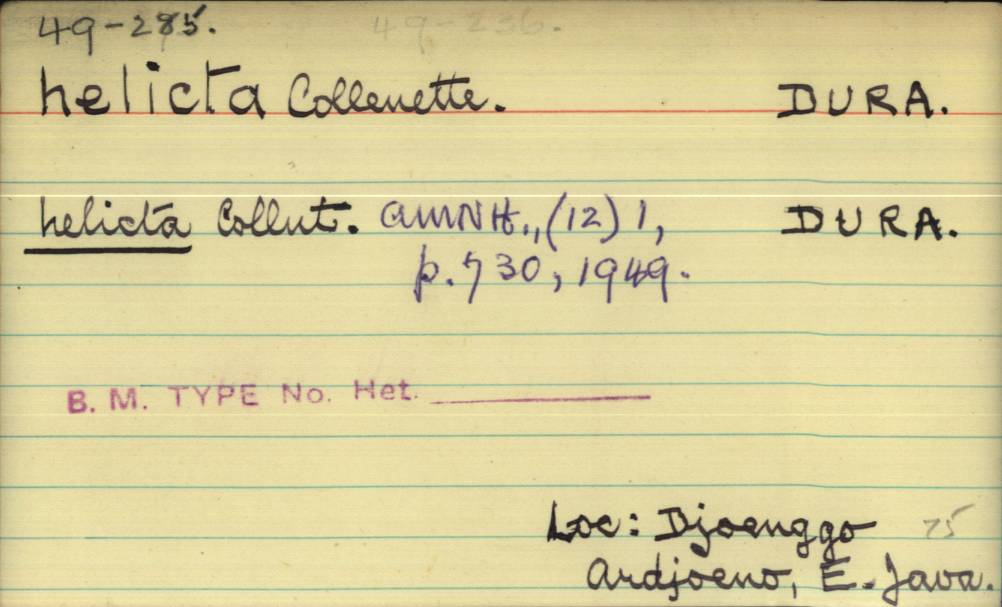 49-285. 49-236.
helicta Collenette. DURA.
helicta Collnt. AMNH., (12) 1, DURA.
p. 730, 1949.
B. M. TYPE No. Het.
Loc: Djoenggo 75
Ardjoeno, E. Java.